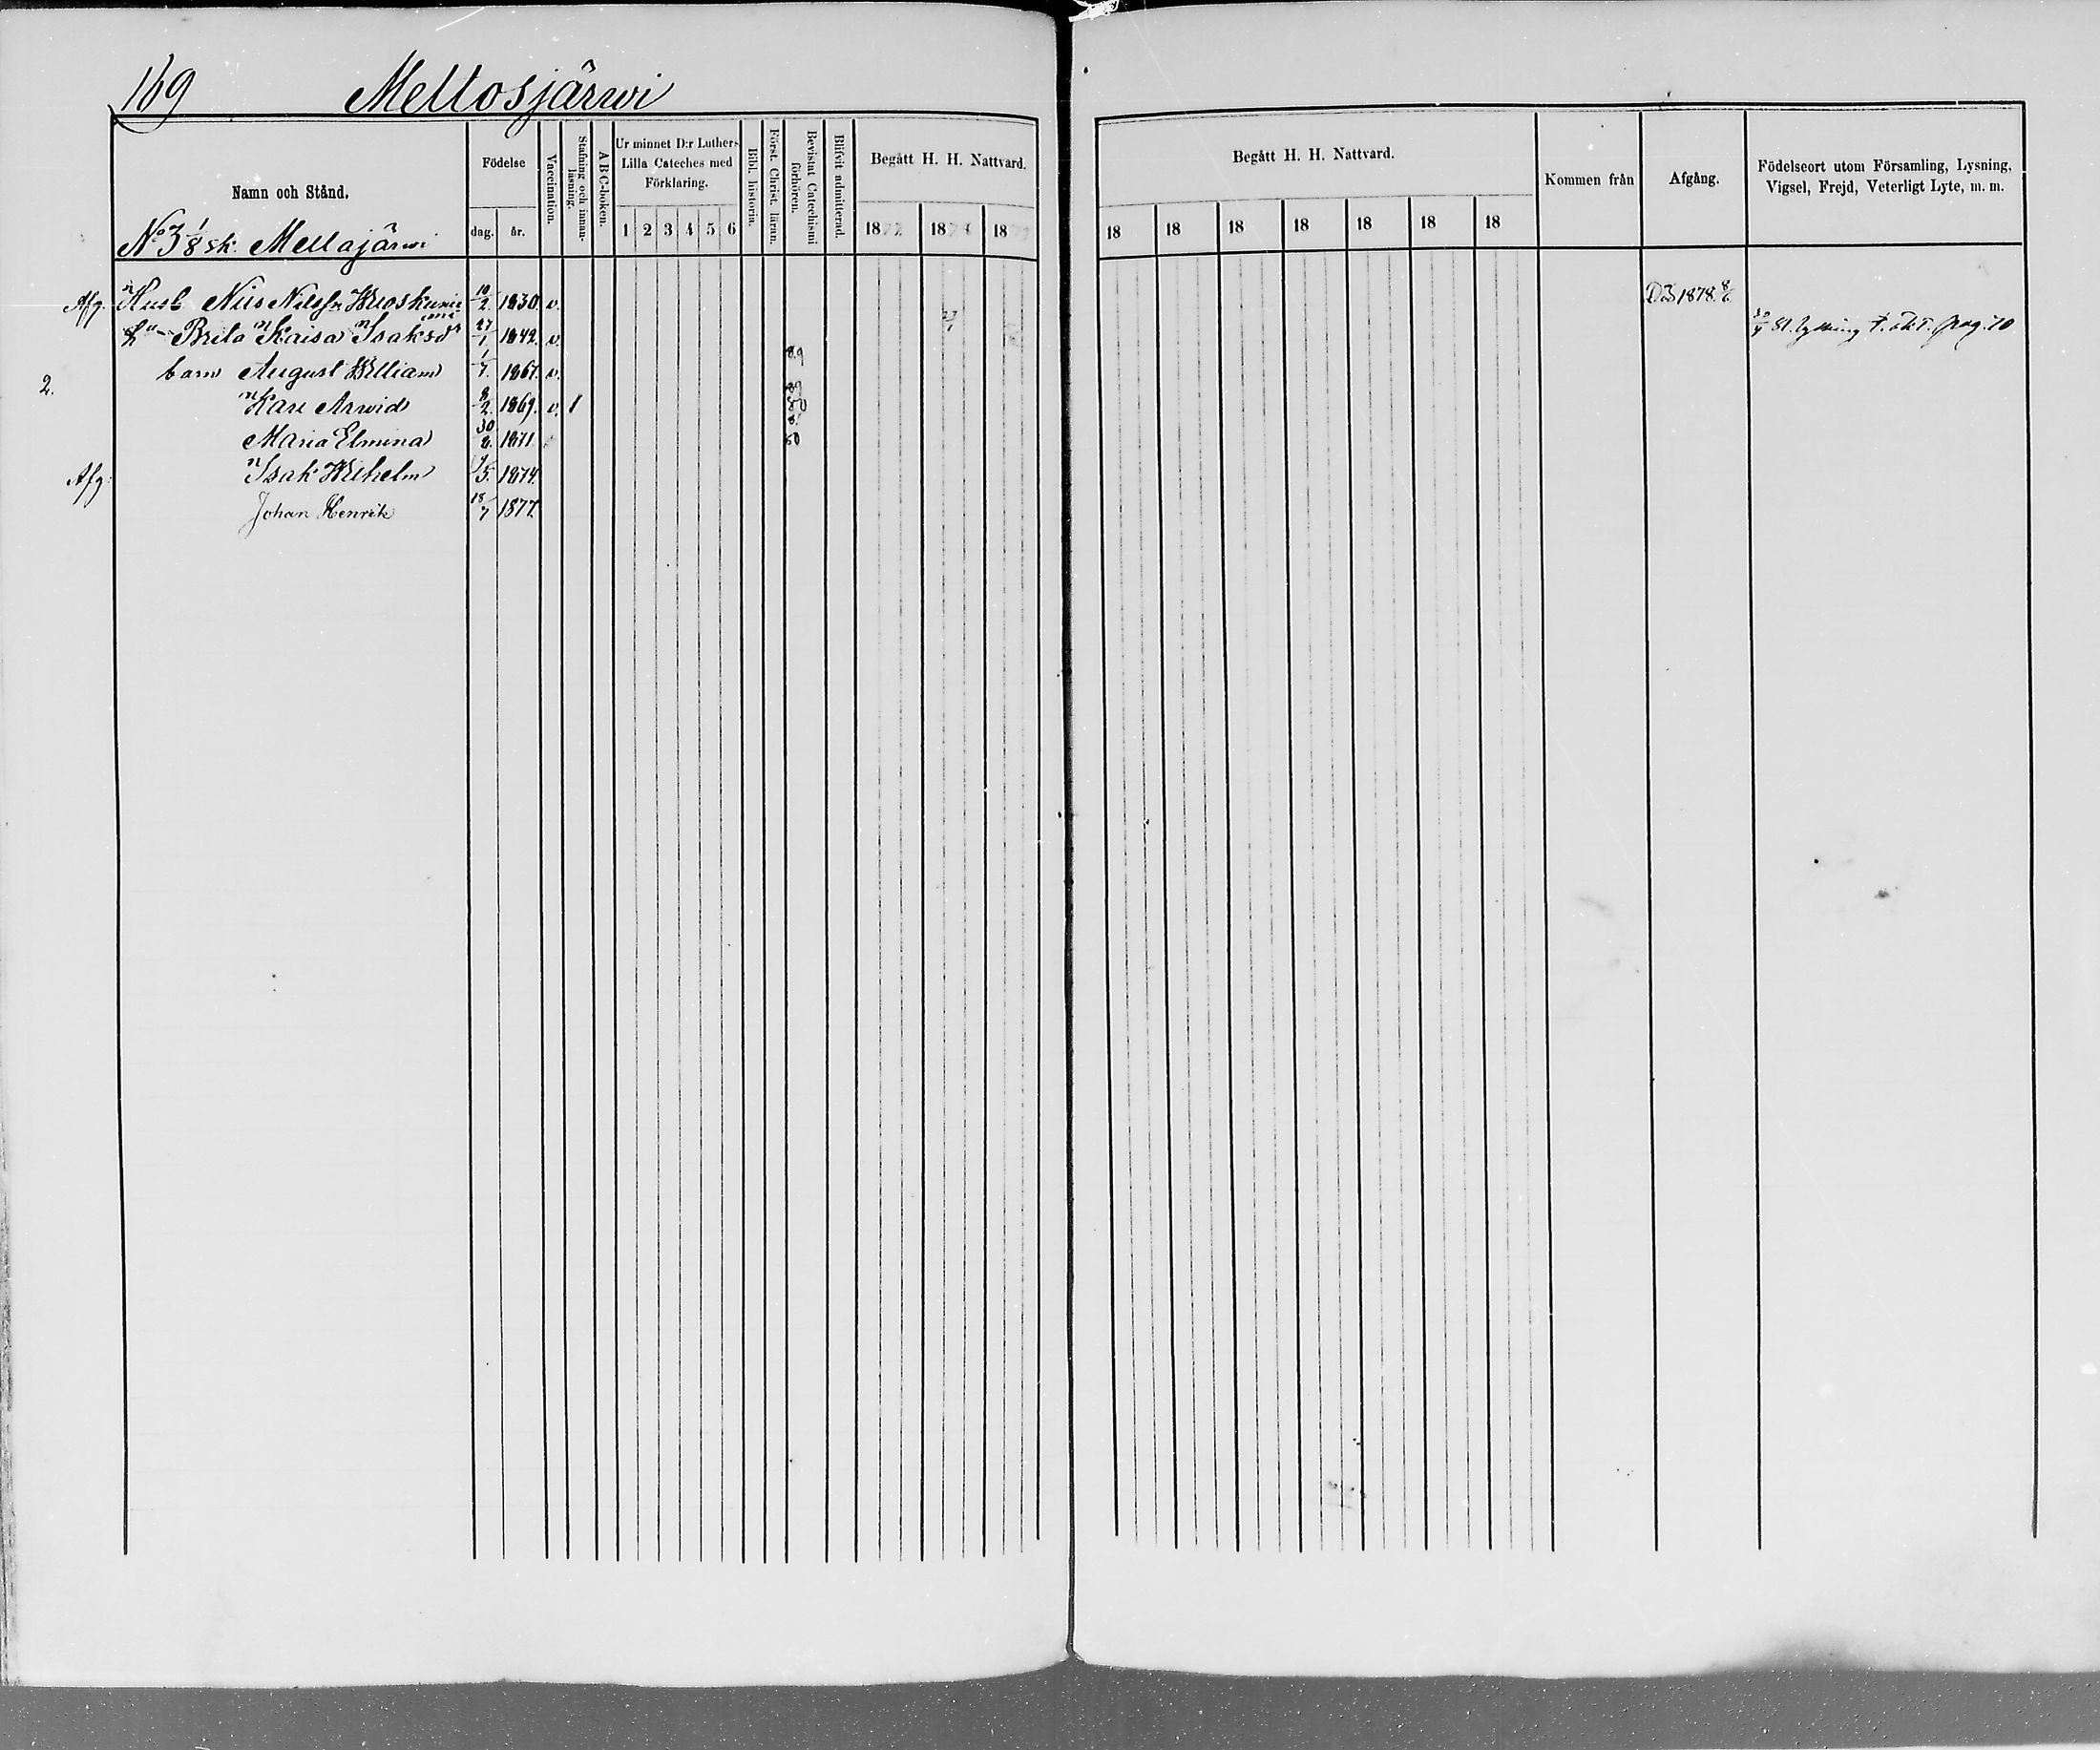 169 Meltosjärwi
Namn och Stånd.
Födelse
dag. år.
Vaccination.
Stafning och innan-läsning.
ABC-boken.
Ur minnet D:r Luthers
Lilla Cateches med
Förklaring.
1 2 3 4 5 6
Bibl. historia.
Först. Christ. läran.
Bevistat Catechismi förhören.
Blifvit admitterad.
Begått H. H. Nattvard.
1877 1878 1879
Begått H. H. Nattvard.
18 18 18 18 18 18 18
Kommen från
Afgång.
Födelseort utom Församling, Lysning,
Vigsel, Frejd, Veterligt Lyte, m. m.
No 3 1/8 sk. Mellajärwi
Afg. Husb Nils Nilsson 10/2. 1830. v. 1878 8/6
Brita Kaisa Isaksdr 27/1 1842. v. 27/1 81 lysning pag. 70
barn August William 1/7. 1867. v. 89
2. Karl Arwid 8/2. 1869. v. 1 89 80
Maria Elmina 30/8. 1871 80
Afg. Isak Wilhelm /5. 1874.
Johan Henrik 18/7 1877.